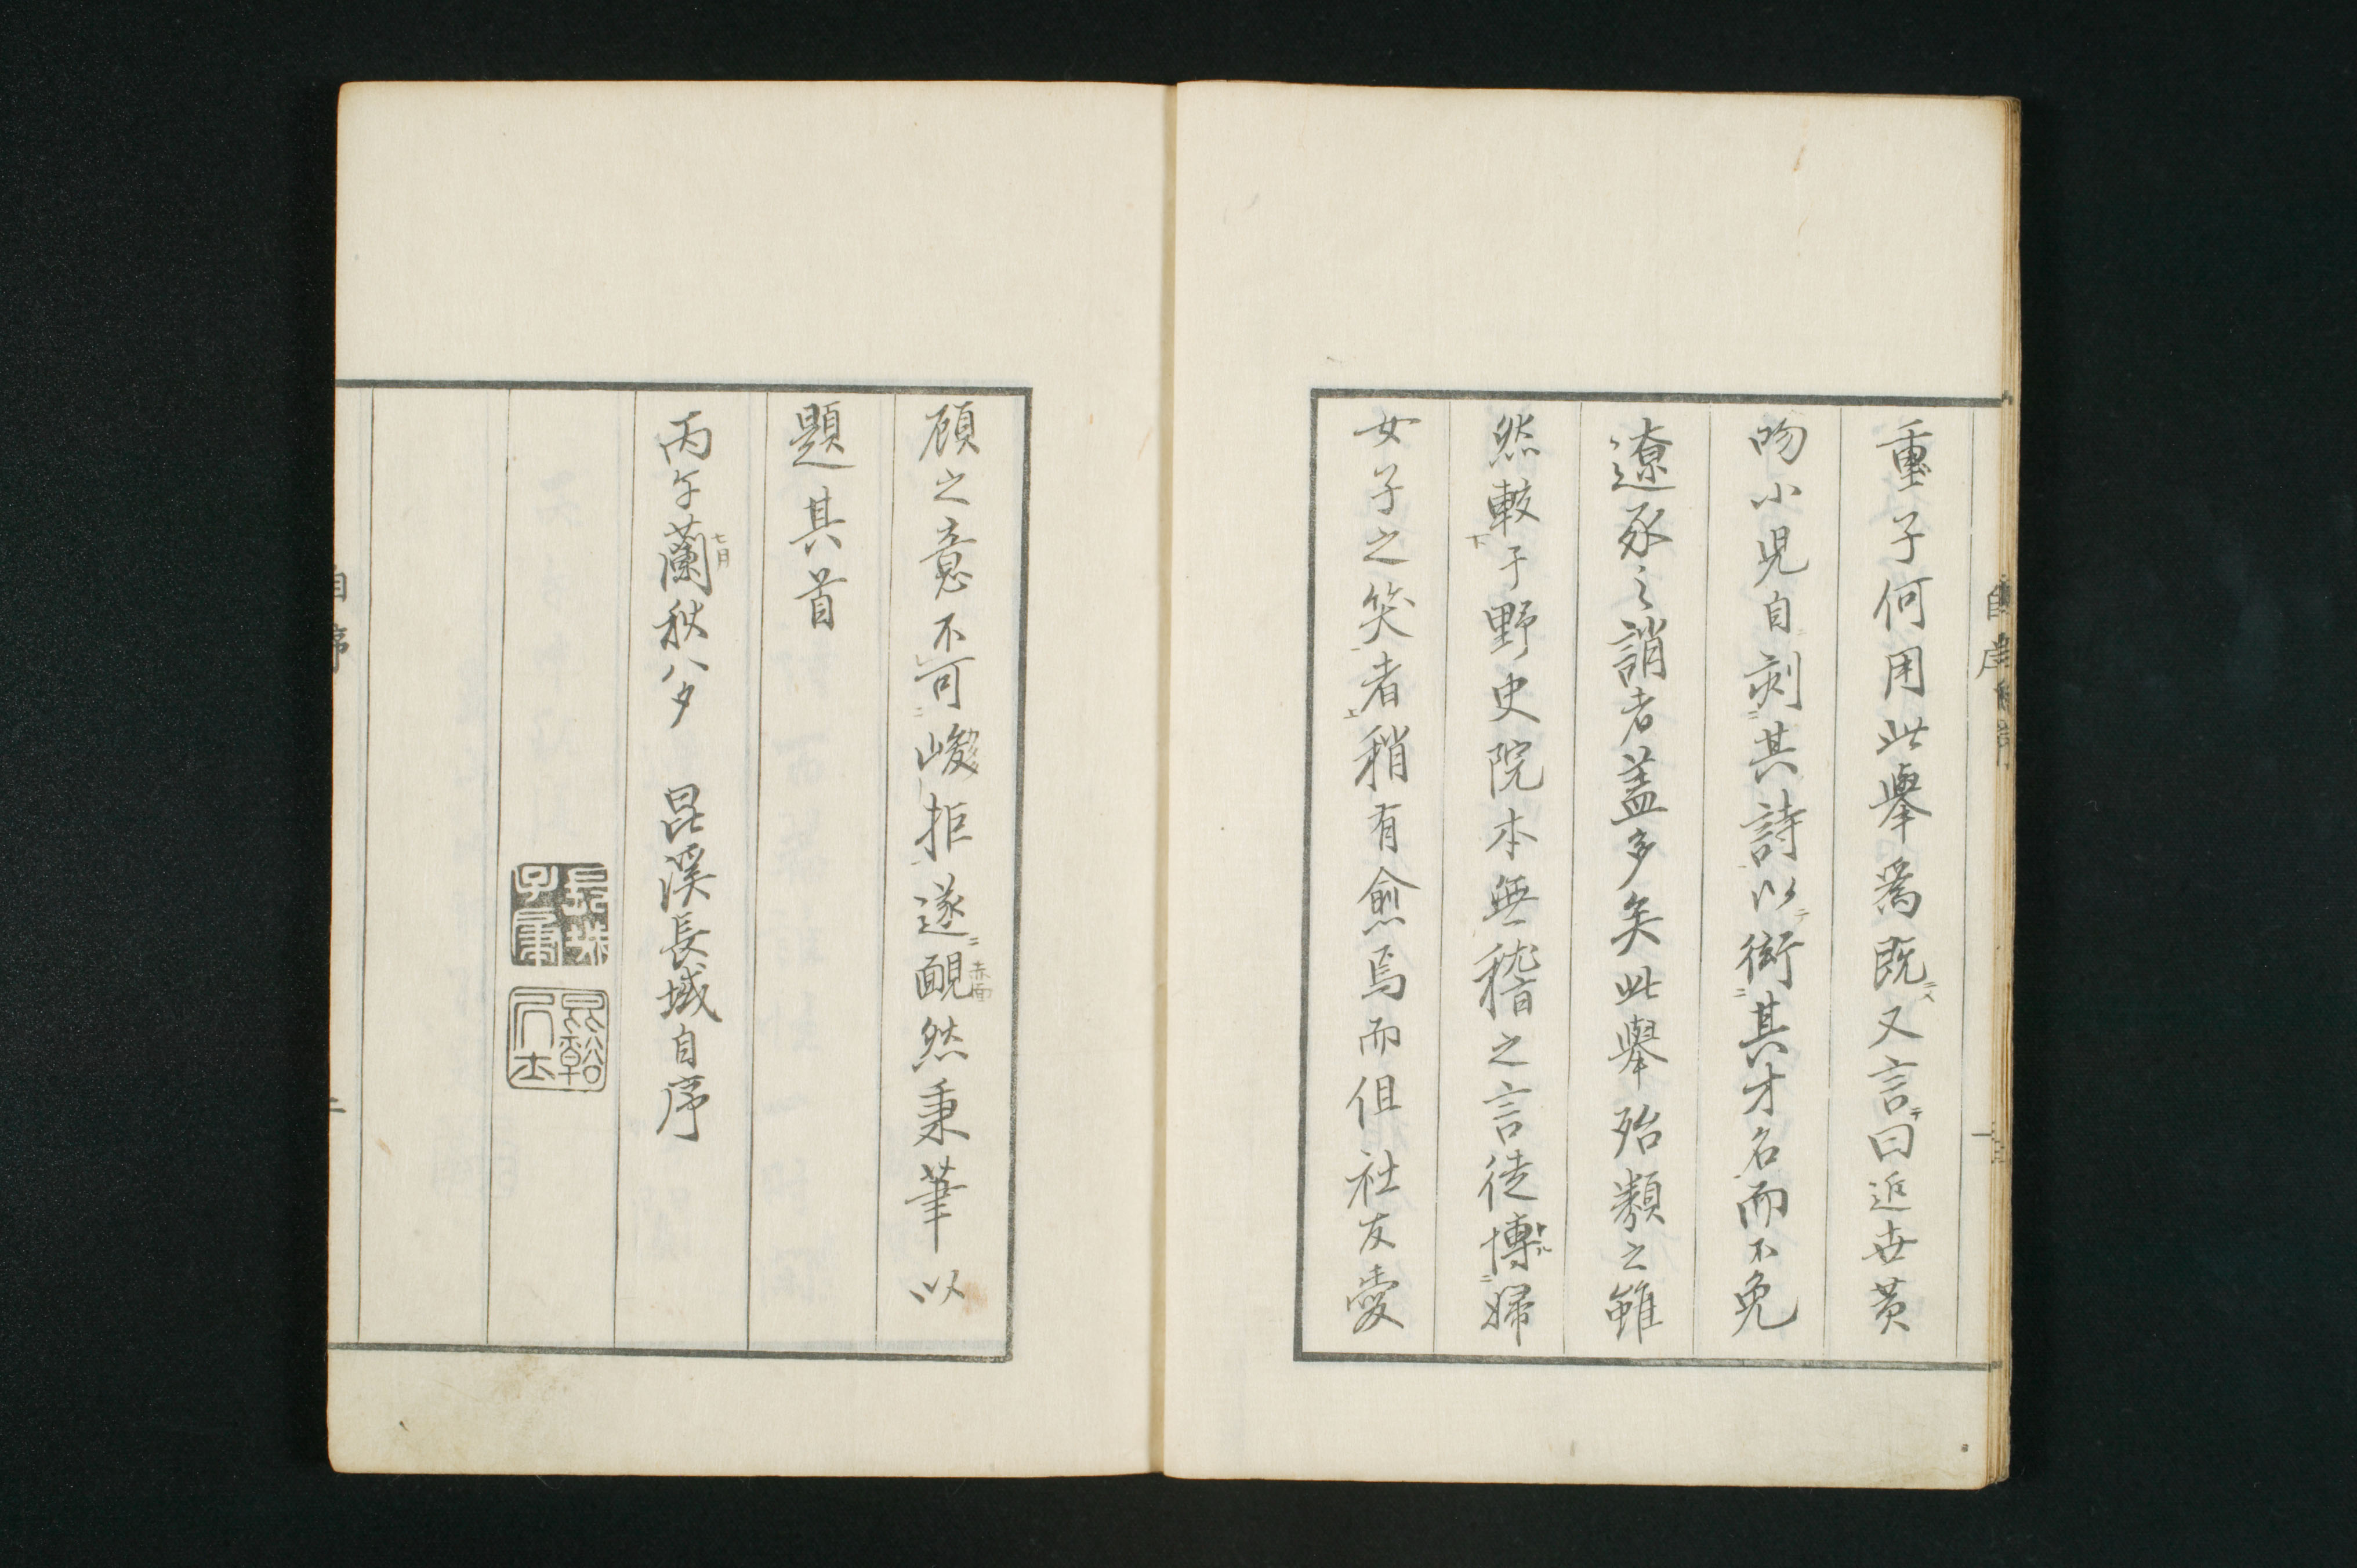 重子何用此舉爲既又言曰近世黃
吻小児自刻其詩以衒其才名而不免
遼豕之誚者蓋多矣此舉殆類之雖
然較于野史院本無稽之言徒博婦
女子之笑者稍有愈焉而但社友愛
顧之意不可峻拒遂靦然秉筆以
赤面
題其首
丙午蘭秋八夕 昆溪長域自序
七月
自序
二